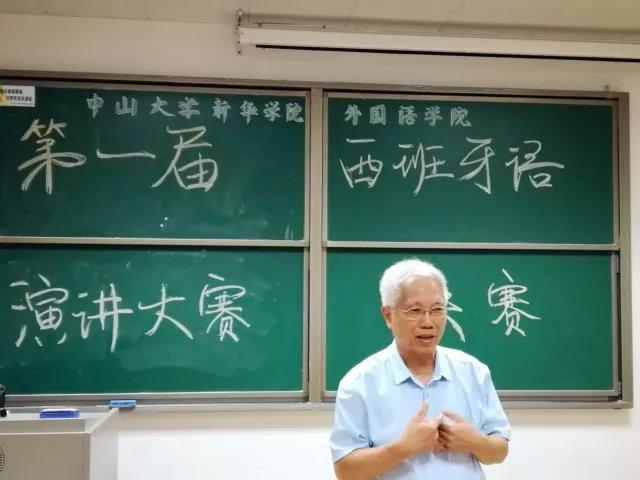 中山大学新华学院 外国语学院
第一届 西班牙语
演讲大赛 赛